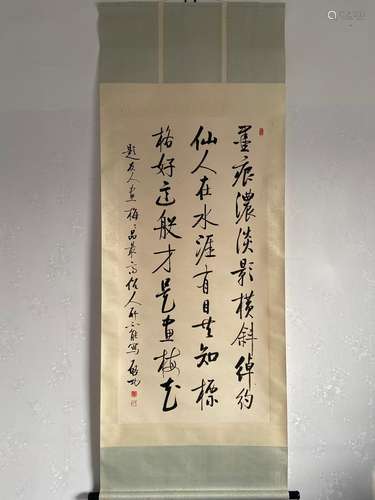 墨痕濃淡影橫斜綽約
仙人在水涯有目共知標
格好這般才是畫梅花
題友人畫梅品最高人所不能寫啟功